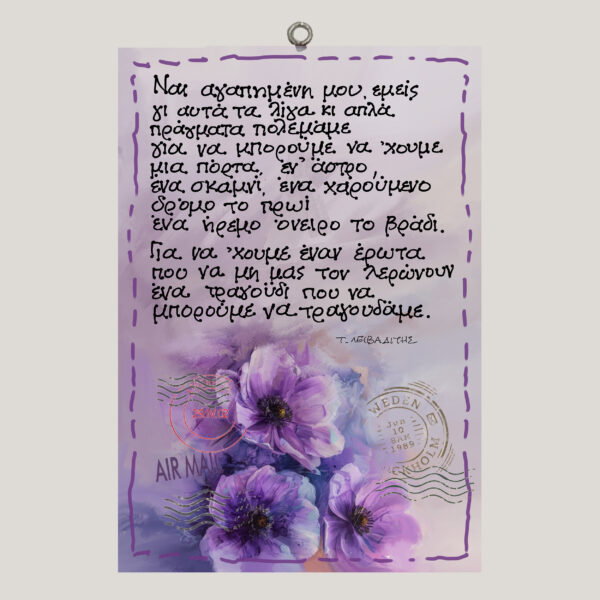 Ναι αγαπημένη μου, εμείς
γι αυτά τα λίγα κι απλά
πράγματα πολεμάμε
για να μπορούμε να 'χουμε
μια πόρτα, έν' άστρο,
ένα σκαμνί, ένα χαρούμενο
δρόμο το πρωί
ένα ήρεμο όνειρο το βράδι.
Για να 'χουμε έναν έρωτα
που να μη μας τον λερώνουν
ένα τραγούδι που να
μπορούμε να τραγουδάμε.
Τ. ΛΕΙΒΑΔΙΤΗΣ
WEDEN
Jun
10
8AM
1989
AIR MAIL